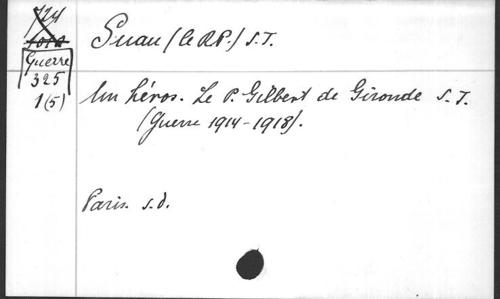 724
Guerre
325
1(5)
Suau (le R.P.) S.J.
Un héros. Le P. Gilbert de Gironde S.J.
(Guerre 1914-1918).
Paris. s.d.